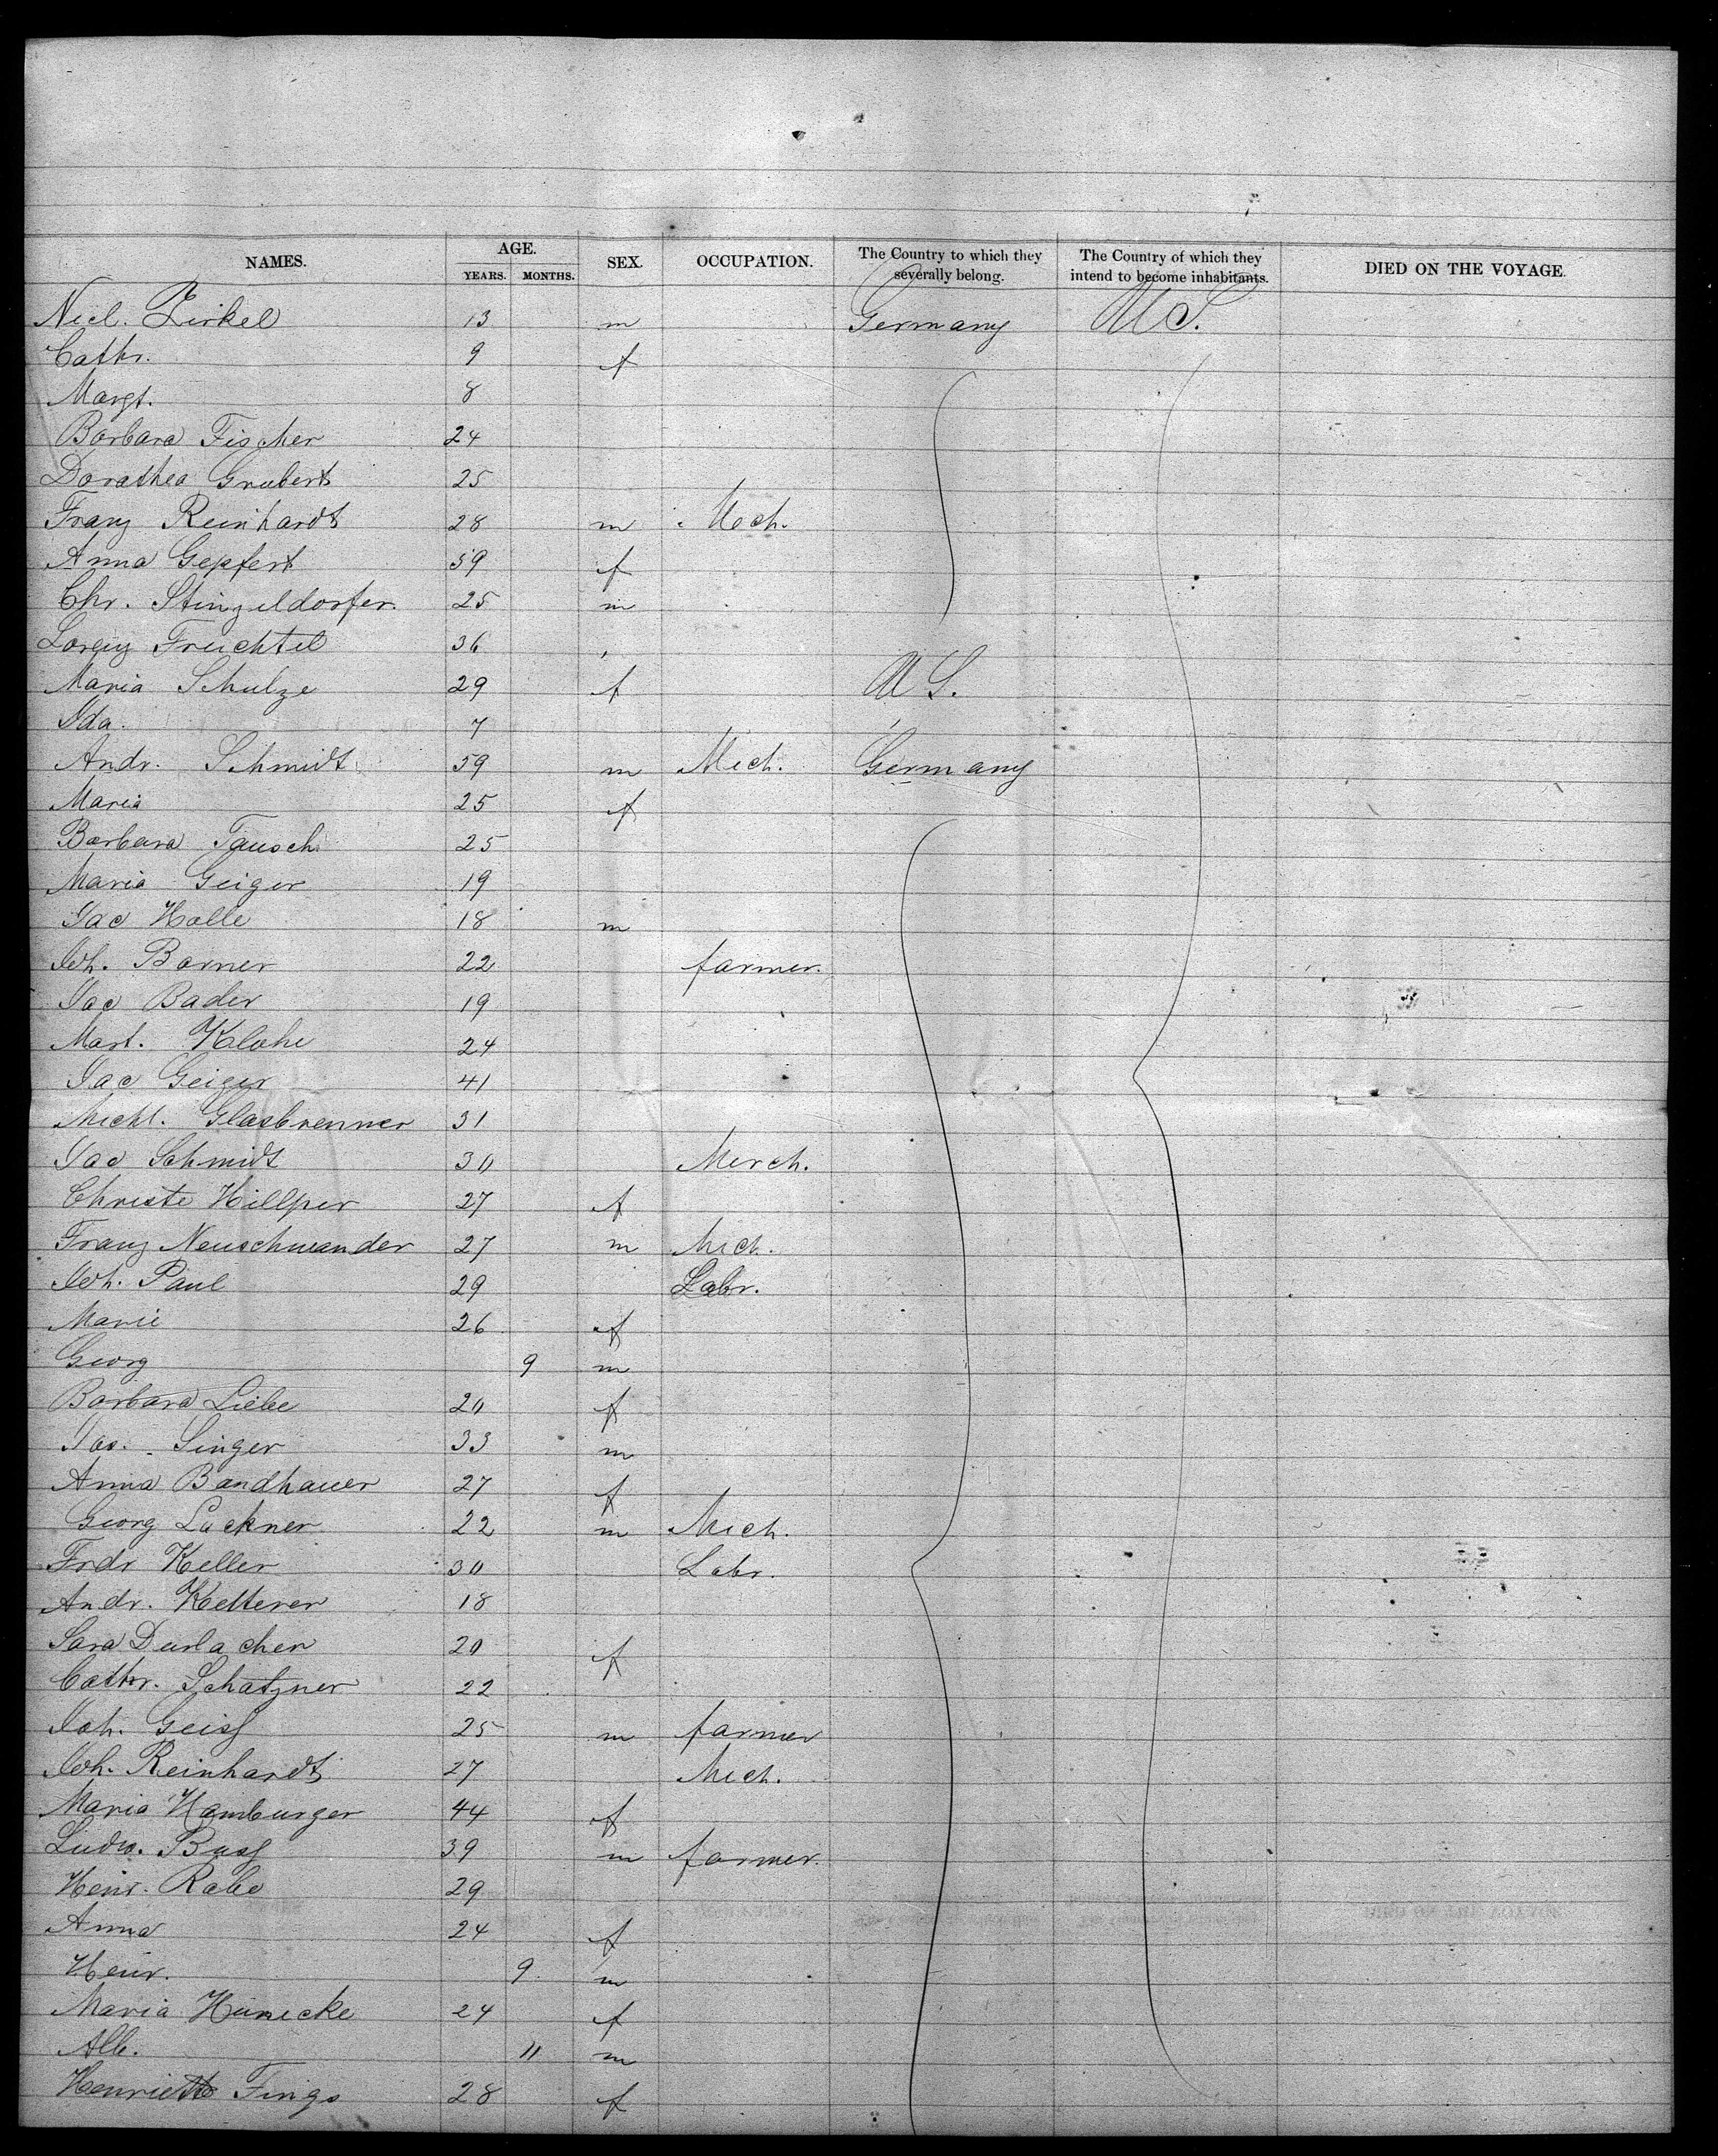 NAMES. AGE. YEARS. MONTHS. SEX. OCCUPATION. The Country to which they severally belong. The Country of which they intend to become inhabitants. DIED ON THE VOYAGE.
Nicl. Zirkel 13 m Germany U S.
Cathr. 9 f
Margt. 8
Barbara Fischer 24
Dorathea Grubert 25
Franz Reinhardt 28 m Mech.
Anna Gepfert 59 f
Chr. Stingeldorfer. 25 m
Lorenz Freichtel 36 ,
Maria Schulze 29 f U S.
Ida. 7 ,
Andr. Schmidt 59 m Mech. Germany
Maria 25 f
Barbara Tausch 25
Maria Geiger 19
Jac Halle 18 m
Joh. Barner 22 farmer.
Jac Bader 19
Mart. Klohe 24
Jac Geiger 41
Michl. Glasbrenner 31
Jac Schmidt 30 Merch.
Christe Hillper 27 f
Franz Neuschwander 27 m Mech.
Joh. Paul 29 Labr.
Marie 26 f
Georg 9 m
Barbara Liebe 20 f
Jos. Singer 33 m
Anna Bandhauer 27 f
Georg Lackner 22 m Mech.
Frdr Keller 30 Labr.
Andr. Ketterer 18
Sara Durlacher 20 f
Cathr. Schatzner 22
Joh. Geiss 25 m farmer
Joh. Reinhardt 27 Mech.
Maria Hamburger 44 f
Ludw. Buss 39 m farmer.
Heinr. Rabe 29
Anna 24 f
Heinr. 9 m
Maria Hünecke 24 f
Alb. 11 m
Henriette Frings 28 f